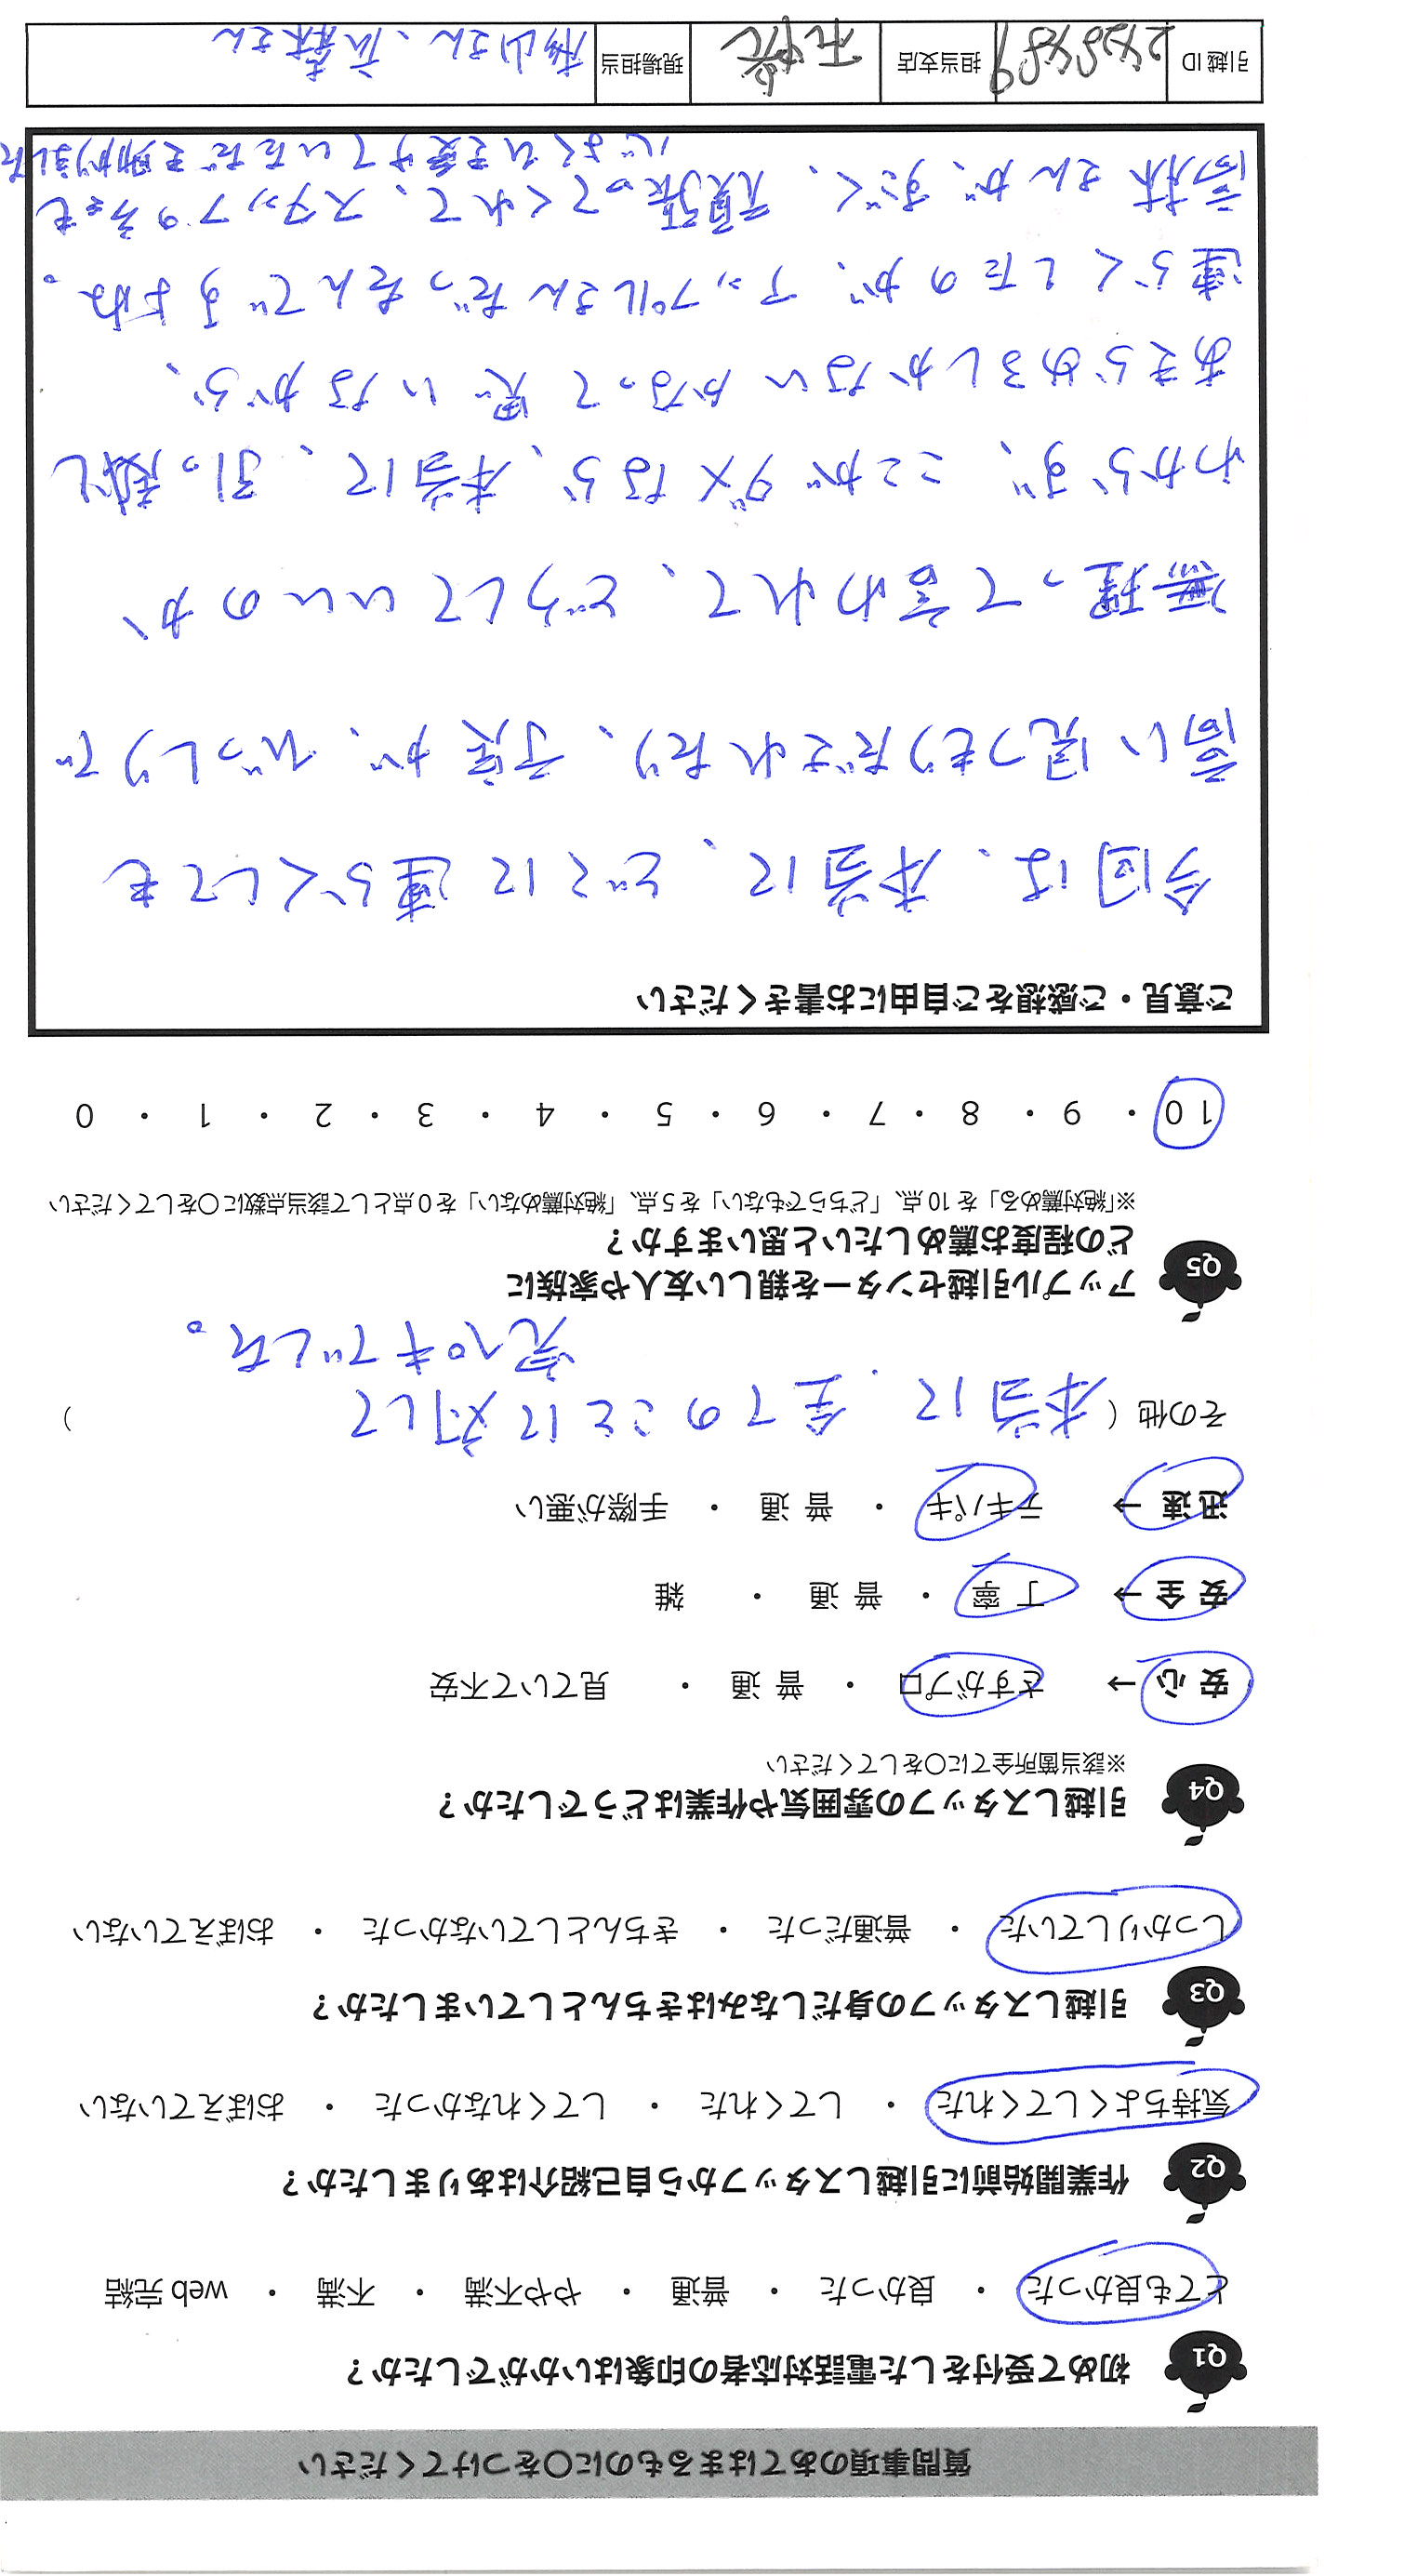 質問事項のあてはまるものに〇をつけてください
Q1 初めて受付をした電話対応者の印象はいかがでしたか？
とても良かった ・ 良かった ・ 普通 ・ やや不満 ・ 不満 ・ web 完結
Q2 作業開始前に引越しスタッフから自己紹介はありましたか？
気持ちよくしてくれた ・ してくれた ・ してくれなかった ・ おぼえていない
Q3 引越しスタッフの身だしなみはきちんとしていましたか？
しっかりしていた ・ 普通だった ・ きちんとしていなかった ・ おぼえていない
Q4 引越しスタッフの雰囲気や作業はどうでしたか？
※該当箇所全てに〇をしてください
安 心 → さすがプロ ・ 普 通 ・ 見ていて不安
安 全 → 丁 寧 ・ 普 通 ・ 雑
迅 速 → テキパキ ・ 普 通 ・ 手際が悪い
その他（本当に、全てのことに対して
完ペキでした。 ）
Q5 アップル引越センターを親しい友人や家族に
どの程度お薦めしたいと思いますか？
※「絶対薦める」を 10 点、「どちらでもない」を 5 点、「絶対薦めない」を 0 点として該当点数に〇をしてください
10 ・ 9 ・ 8 ・ 7 ・ 6 ・ 5 ・ 4 ・ 3 ・ 2 ・ 1 ・ 0
ご意見・ご感想をご自由にお書きください
今回は、本当に、どこに連らくしても
高い見つもりだされたり、予定が、びっしりで
無理って言われて、どうしていいのか
わからず、ここがダメなら、本当に、引っ越し
あきらめるしかないかなって思いながら、
連らくしたのが、アップルさんだったんですよね。
高林さんが、すごく、頑張ってくれて、スタッフの方々も
心よくひき受けていただき助かりました
引越 ID 担当支店 現場担当 杉山さん、高森さん